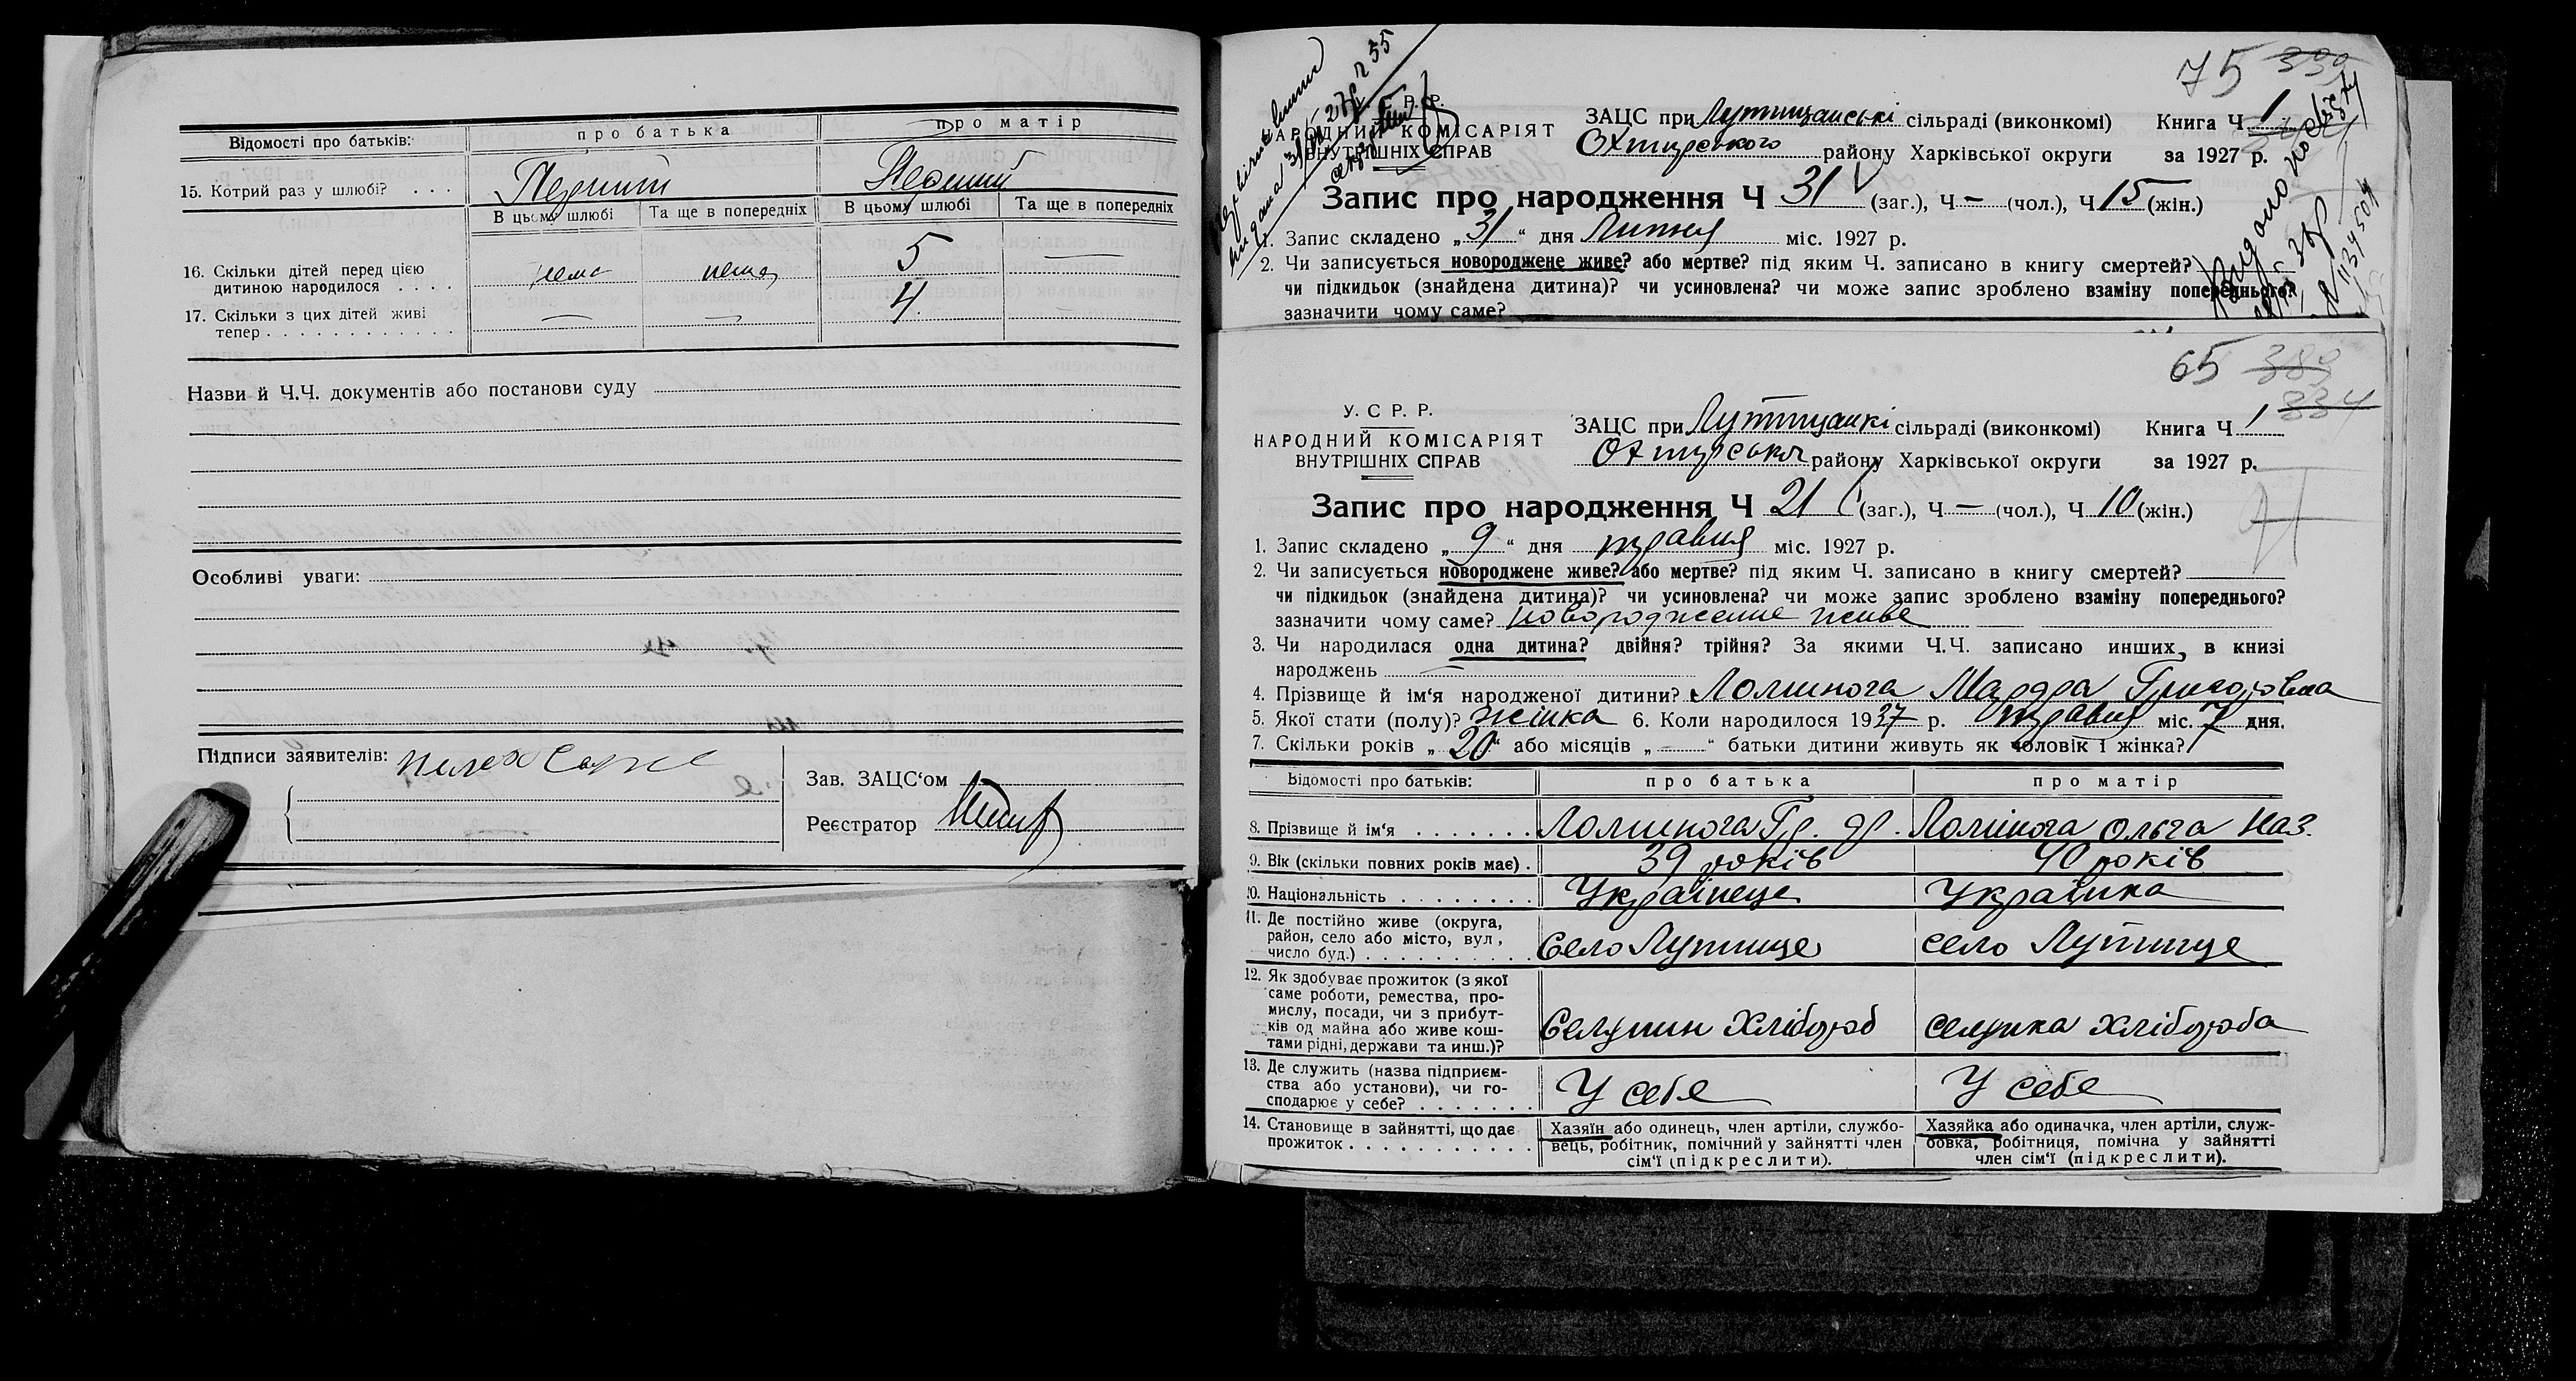 Відомості про батьків: про батька про матір
15. Котрий раз у шлюбі? . . . Перший Перший
В цьому шлюбі Та ще в попередніх В цьому шлюбі Та ще в попередніх
16. Скільки дітей перед цією
дитиною народилося . . . . нема нема 5 —
17. Скільки з цих дітей живі
тепер . . . . . . . . . . . . — — 4 —
Назви й Ч.Ч. документів або постанови суду
Особливі уваги:
Підписи заявителів:
Зав. ЗАЦС‘ом
Реєстратор
75 339
У. С. Р. Р.
НАРОДНИЙ КОМІСАРІЯТ
ВНУТРІШНІХ СПРАВ
ЗАЦС при Лутищанські сільраді (виконкомі) Книга Ч 1
Охтирського району Харківської округи за 1927 р.
Запис про народження Ч 31 (заг.), Ч — (чол.), Ч 15 (жін.)
1. Запис складено „ 31 “ дня Липня міс. 1927 р.
2. Чи записується новороджене живе? або мертве? під яким Ч. записано в книгу смертей?
чи підкидьок (знайдена дитина)? чи усиновлена? чи може запис зроблено взаміну попереднього?
зазначити чому саме?
65 389
334
У. С Р. Р.
НАРОДНИЙ КОМІСАРІЯТ
ВНУТРІШНІХ СПРАВ
ЗАЦС при Лутищанкі сільраді (виконкомі) Книга Ч 1
Охтирська району Харківської округи за 1927 р.
Запис про народження Ч 21 (заг.), Ч — (чол.), Ч 10 (жін.)
1. Запис складено „ 9 “ дня травня міс. 1927 р.
2. Чи записується новороджене живе? або мертве? під яким Ч. записано в книгу смертей?
чи підкидьок (знайдена дитина)? чи усиновлена? чи може запис зроблено взаміну попереднього?
зазначити чому саме? новородженне живе
3. Чи народилася одна дитина? двійня? трійня? За якими Ч.Ч. записано инших, в книзі
народжень —
4. Прізвище й ім‘я народженої дитини? Ломинога Мардра Григоровна
5. Якої стати (полу)? жінка 6. Коли народилося 1927 р. травня міс. 7 дня.
7. Скільки років „ 20 “ або місяців „ — “ батьки дитини живуть як чоловік і жінка?
Відомості про батьків: про батька про матір
8. Прізвище й ім‘я . . . . . . . Ломинога Гр. др. Ломінога Ольга Наз.
9. Вік (скільки повних років має) . 39 років 40 років
10. Національність . . . . . . . . Українець Українка
11. Де постійно живе (округа,
район, село або місто, вул,
число буд.) . . . . . . . . . . Село Лутище село Лутище
12. Як здобуває прожиток (з якої
саме роботи, ремества, про-
мислу, посади, чи з прибут-
ків од майна або живе кош-
тами рідні, держави та инш.)? Селянин хлібороб селянка хлібороба
13. Де служить (назва підприєм-
ства або установи), чи го-
сподарює у себе? . . . . . . . У себе У себе
14. Становище в зайнятті, що дає
прожиток . . . . . . . . . . .
Хазяїн або одинець, член артіли, службо-
вець, робітник, помічний у зайнятті член
сім‘ї (підкреслити).
Хазяйка або одиначка, член артіли, служ-
бовка, робітниця, помічна у зайнятті
член сім‘ї (підкреслити).